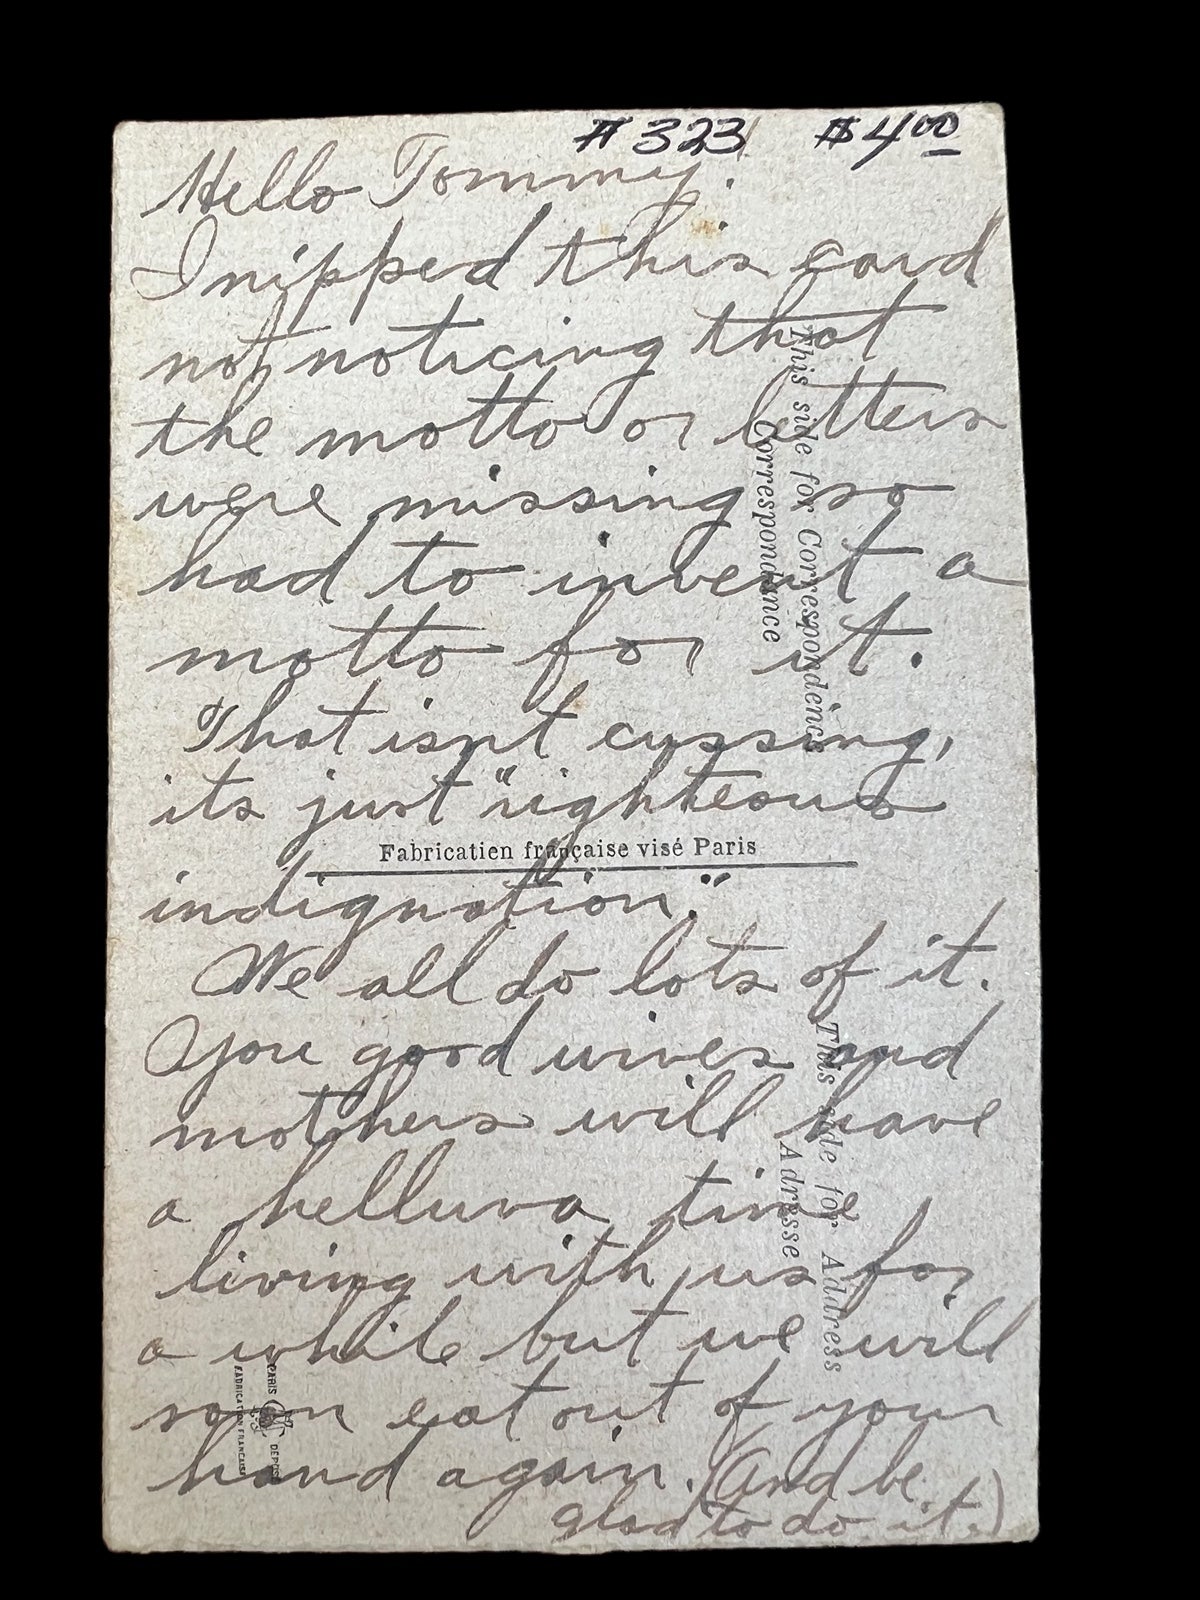 # 323 $4.00
Hello Tommy.
I nipped this card
not noticing that
the motto or letters
were missing so
had to invent a
motto for it.
That isnt cussing,
its just "righteous
Fabrication française visé Paris
indignation."
We all do lots of it.
You good wives and
mothers will have
a helluva time
living with us for
a while but we will
soon eat out of your
hand again. (And be
glad to do it.)
This side for Correspondence
Correspondance
This side for Address
Adresse
PARIS DEPOSE
FABRICATION FRANCAISE